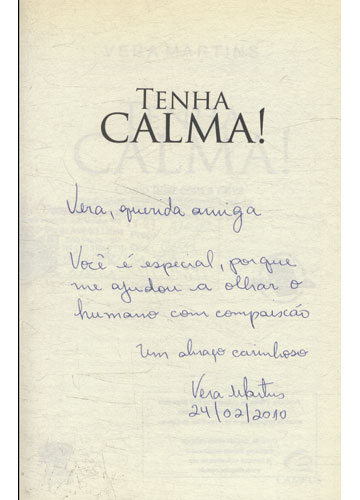 VERA MARTINS
TENHA
CALMA!
CALMA!
Vera, querida amiga
Você é especial, porque
me ajudou a olhar o
humano com compaixão
Um abraço carinhoso
Vera Martins
24/02/2010
CAMPUS